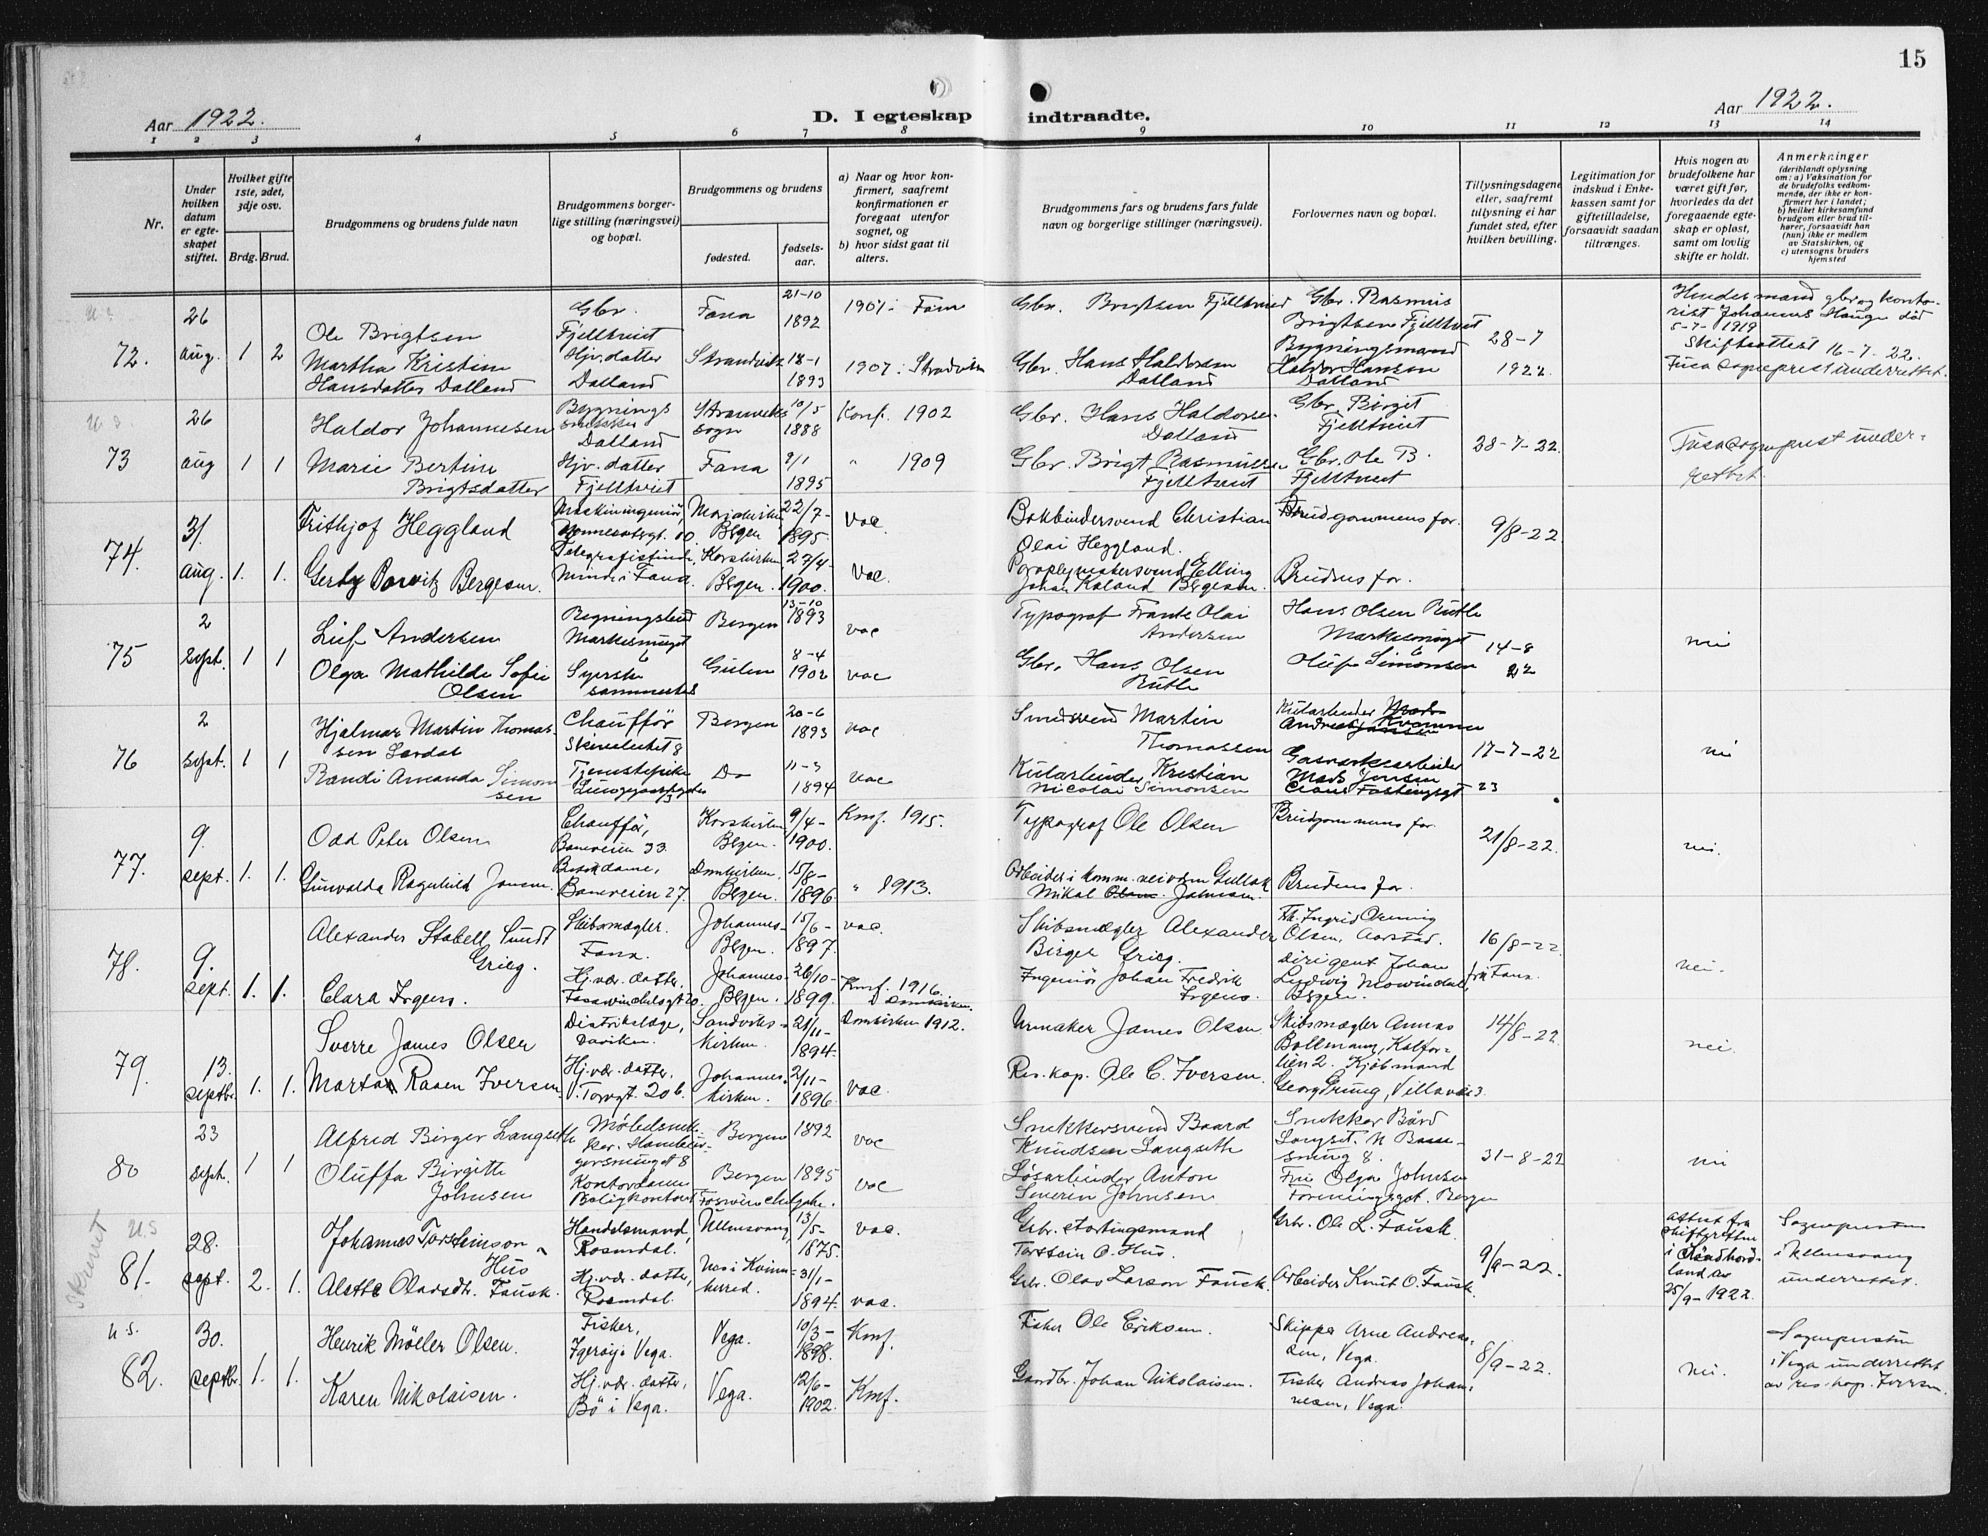 15
Aar 1922.
D. I egteskap indtraadte.
Aar 1922.
1 2 3 4 5 6 7 8 9 10 11 12 13 14
Nr.
Under hvilken datum er egteskapet stiftet.
Hvilket gifte 1ste, 2det, 3dje osv.
Brdg. Brud.
Brudgommens og brudens fulde navn
Brudgommens borgerlige stilling (næringsvei) og bopæl.
Brudgommens og brudens
fødested.
fødselsaar.
a) Naar og hvor konfirmert, saafremt konfirmationen er foregaat utenfor sognet, og
b) hvor sidst gaat til alters.
Brudgommens fars og brudens fars fulde navn og borgerlige stillinger (næringsvei).
Forlovernes navn og bopæl.
Tillysningsdagene eller, saafremt tillysning ei har fundet sted, efter hvilken bevilling.
Legitimation for indskud i Enkekassen samt for giftetilladelse, forsaavidt saadan tiltrænges.
Hvis nogen av brudefolkene har været gift før, hvorledes da det foregaaende egteskap er opløst, samt om lovlig skifte er holdt.
Anmerkninger (deriblandt oplysning om: a) Vaksination for de brudefolks vedkommende, der ikke er konfirmert her i landet; b) hvilket kirkesamfund brudgom eller brud tilhører, forsaavidt han (hun) ikke er medlem av Statskirken, og c) utensogns bruders hjemsted
72. 26 aug. 1 2
Ole Brigtsen
Gbr. Fjelltveit
Fana
21-10 1892
1907: Fana
Gbr. Brigtsen Fjelltveit
Gbr. Rasmus Brigtsen Fjelltveit
28-7 1922
Martha Kristine Hansdatter Dalland
Hjv. datter Dalland
Strandvik
18-1 1893
1907: Strandvik
Gbr. Hans Haldorsen Dalland
Bygningsmand Haldor Hansen Dalland
Hendes mand gbr og kontorist Johannes Hauge død
5-7-1919
Skifteattest 16-7-22.
Fusa sogneprest underrettet.
73 26 aug 1 1
Haldor Johannesen
Bygnings snekker Dalland
Strandviks sogn
10/5 1888
Konf. 1902
Gbr. Hans Haldorsen Dalland
Gbr. Birgit Fjelltveit
28-7-22.
Marie Bertine Brigtsdatter
Hjv. datter Fjelltveit
Fana
9/1 1895
" 1909
Gbr. Brigt Rasmussen Fjelltveit
Gbr. Ole B. Fjelltveit
Fusa sogneprest underrettet.
74. 31 aug. 1. 1.
Frithjof Heggland
Maskiningeniør,
Mariakirken Bergen
22/7- 1895.
vac.
Bokbindersvend Christian Olai Heggland.
Brudgommens far.
9/8-22
Gerdy Bergesen
Telegrafistinde, Minde i Fana.
Korskirken Bgen.
1900.
vac.
Elling Johan Kaland Bergesen
Brudens far.
75 2 sept. 1 1
Leif Andersen
Markesmuget 6
Bergen
13-10 1893
vac
Typograf Frantz Olai Andersen
Hans Olsen Rutle Markesmuget 6
14-8 22
nei
Olga Mathilde Sofie Olsen
Syerske sammesteds
Gulen
8-4 1902
vac
Gbr. Hans Olsen Rutle
Oluf Simonsen
76 2 sept. 1 1
Hjalmar Martin Thomassen Lerdal
Chauffør 8
Bergen
20-6 1893
vac
Smedsvend Martin Thomassen
17-7-22
nei
Randi Amanda Simonsen
Tjenestepike
Do
11-3 1894
vac
Kularbeider Kristian Nicolai Simonsen
Gasverksarbeider Mads Jensen Claus Fastingsgt 23
77. 9. sept. 1. 1.
Odd Peter Olsen
Chauffør, Baneveien 33.
Korskirken Bgen.
9/4- 1900.
Konf. 1915.
Typograf Ole Olsen
Brudgommens far.
21/8-22.
nei.
Gunvalda Ragnhild Jansen
Baneveien 27.
Domkirken. Bgen.
15/8- 1896
" 1913.
Arbeider i komm. veivesen Mikal
Brudens far.
78. 9. sept. 1. 1.
Alexander Stabell Sundt Grieg.
Skibsmægler. Fana.
Johannes- Bgen.
15/6- 1897.
vac.
Skibsmægler Alexander Birger Grieg.
Frk. Ingrid Olsen, Aarstad.
16/8-22 fra Fana.
nei.
Clara Irgens.
Hj.vær. datter,
Johannes- Bgen.
26/10- 1899.
Konf. 1916. Domkirken.
Ingeniør Johan Fredrik Irgens.
Dirigent Johan Ludvig Mowinckel, Bergen.
79. 13. septbr. 1. 1.
Sverre James Olsen
Distriktslæge, Daviken.
Sandvikskirken.
21/11- 1894.
Domkirken 1912.
Urmaker James Olsen
Skibsmægler Annas Bollmann, Kalfarlien 2.
14/8-22
nei.
Marta Raaen Iversen
Hj.vær. datter. V. Torvgt. 20 b.
Johannes- kirken.
2/11- 1896.
vac.
Res. kap. Ole C. Iversen.
Kjøbmand Georg Grung, Villavei 3
80 23 sept. 1 1
Alfred Birger Langseth
Møbelsnekker. 8
Bergen
1892
vac
Snekkersvend Baard Knudsen Langseth
Snekker Bård 8.
31-8-22
nei
Oluffa Birgitte Johnsen
Kontordame Boligkontoret
Bergen
1895
vac
Løsarbeider Anton Severin Johnsen
Fru Olga Johnsen Foreningsgt. Bergen
skrevet u.s
81. 28. sept. 2. 1.
Johannes Torsteinson Hus
Handelsmand, Rosendal.
Ullensvang,
13/5- 1875.
vac.
Grbr. stortingsmand Torstein O. Hus.
Grbr. Ole L. Fausk.
9/9-22.
attest fra skifteretten i Hardhordland av 25/9-1922.
Sognepresten i Ullensvang underrettet.
Alette Olavsdtr. Fausk.
Hj.vær. datter, Rosendal.
Nes i Kvinnherred.
31/1- 1894.
vac.
Grbr. Olav Larson Fausk.
Arbeider Knut O. Fausk.
u.s.
82. 30. septbr. 1. 1.
Henrik Møller Olsen.
Fisker, Igerøy i Vega.
Vega.
10/3- 1898.
Konf.
Fisker Ole Eriksen.
Skipper Arne Andreassen, Vega.
8/9-22.
nei.
Sognepresten i Vega underrettet av res. kap. Iversen.
Karen Nikolaisen.
Hj.vær. datter, Bø i Vega.
Vega.
12/6- 1902.
Konf.
Gaardbr. Johan Nikolaisen.
Fisker Andreas Johannesen, Vega.